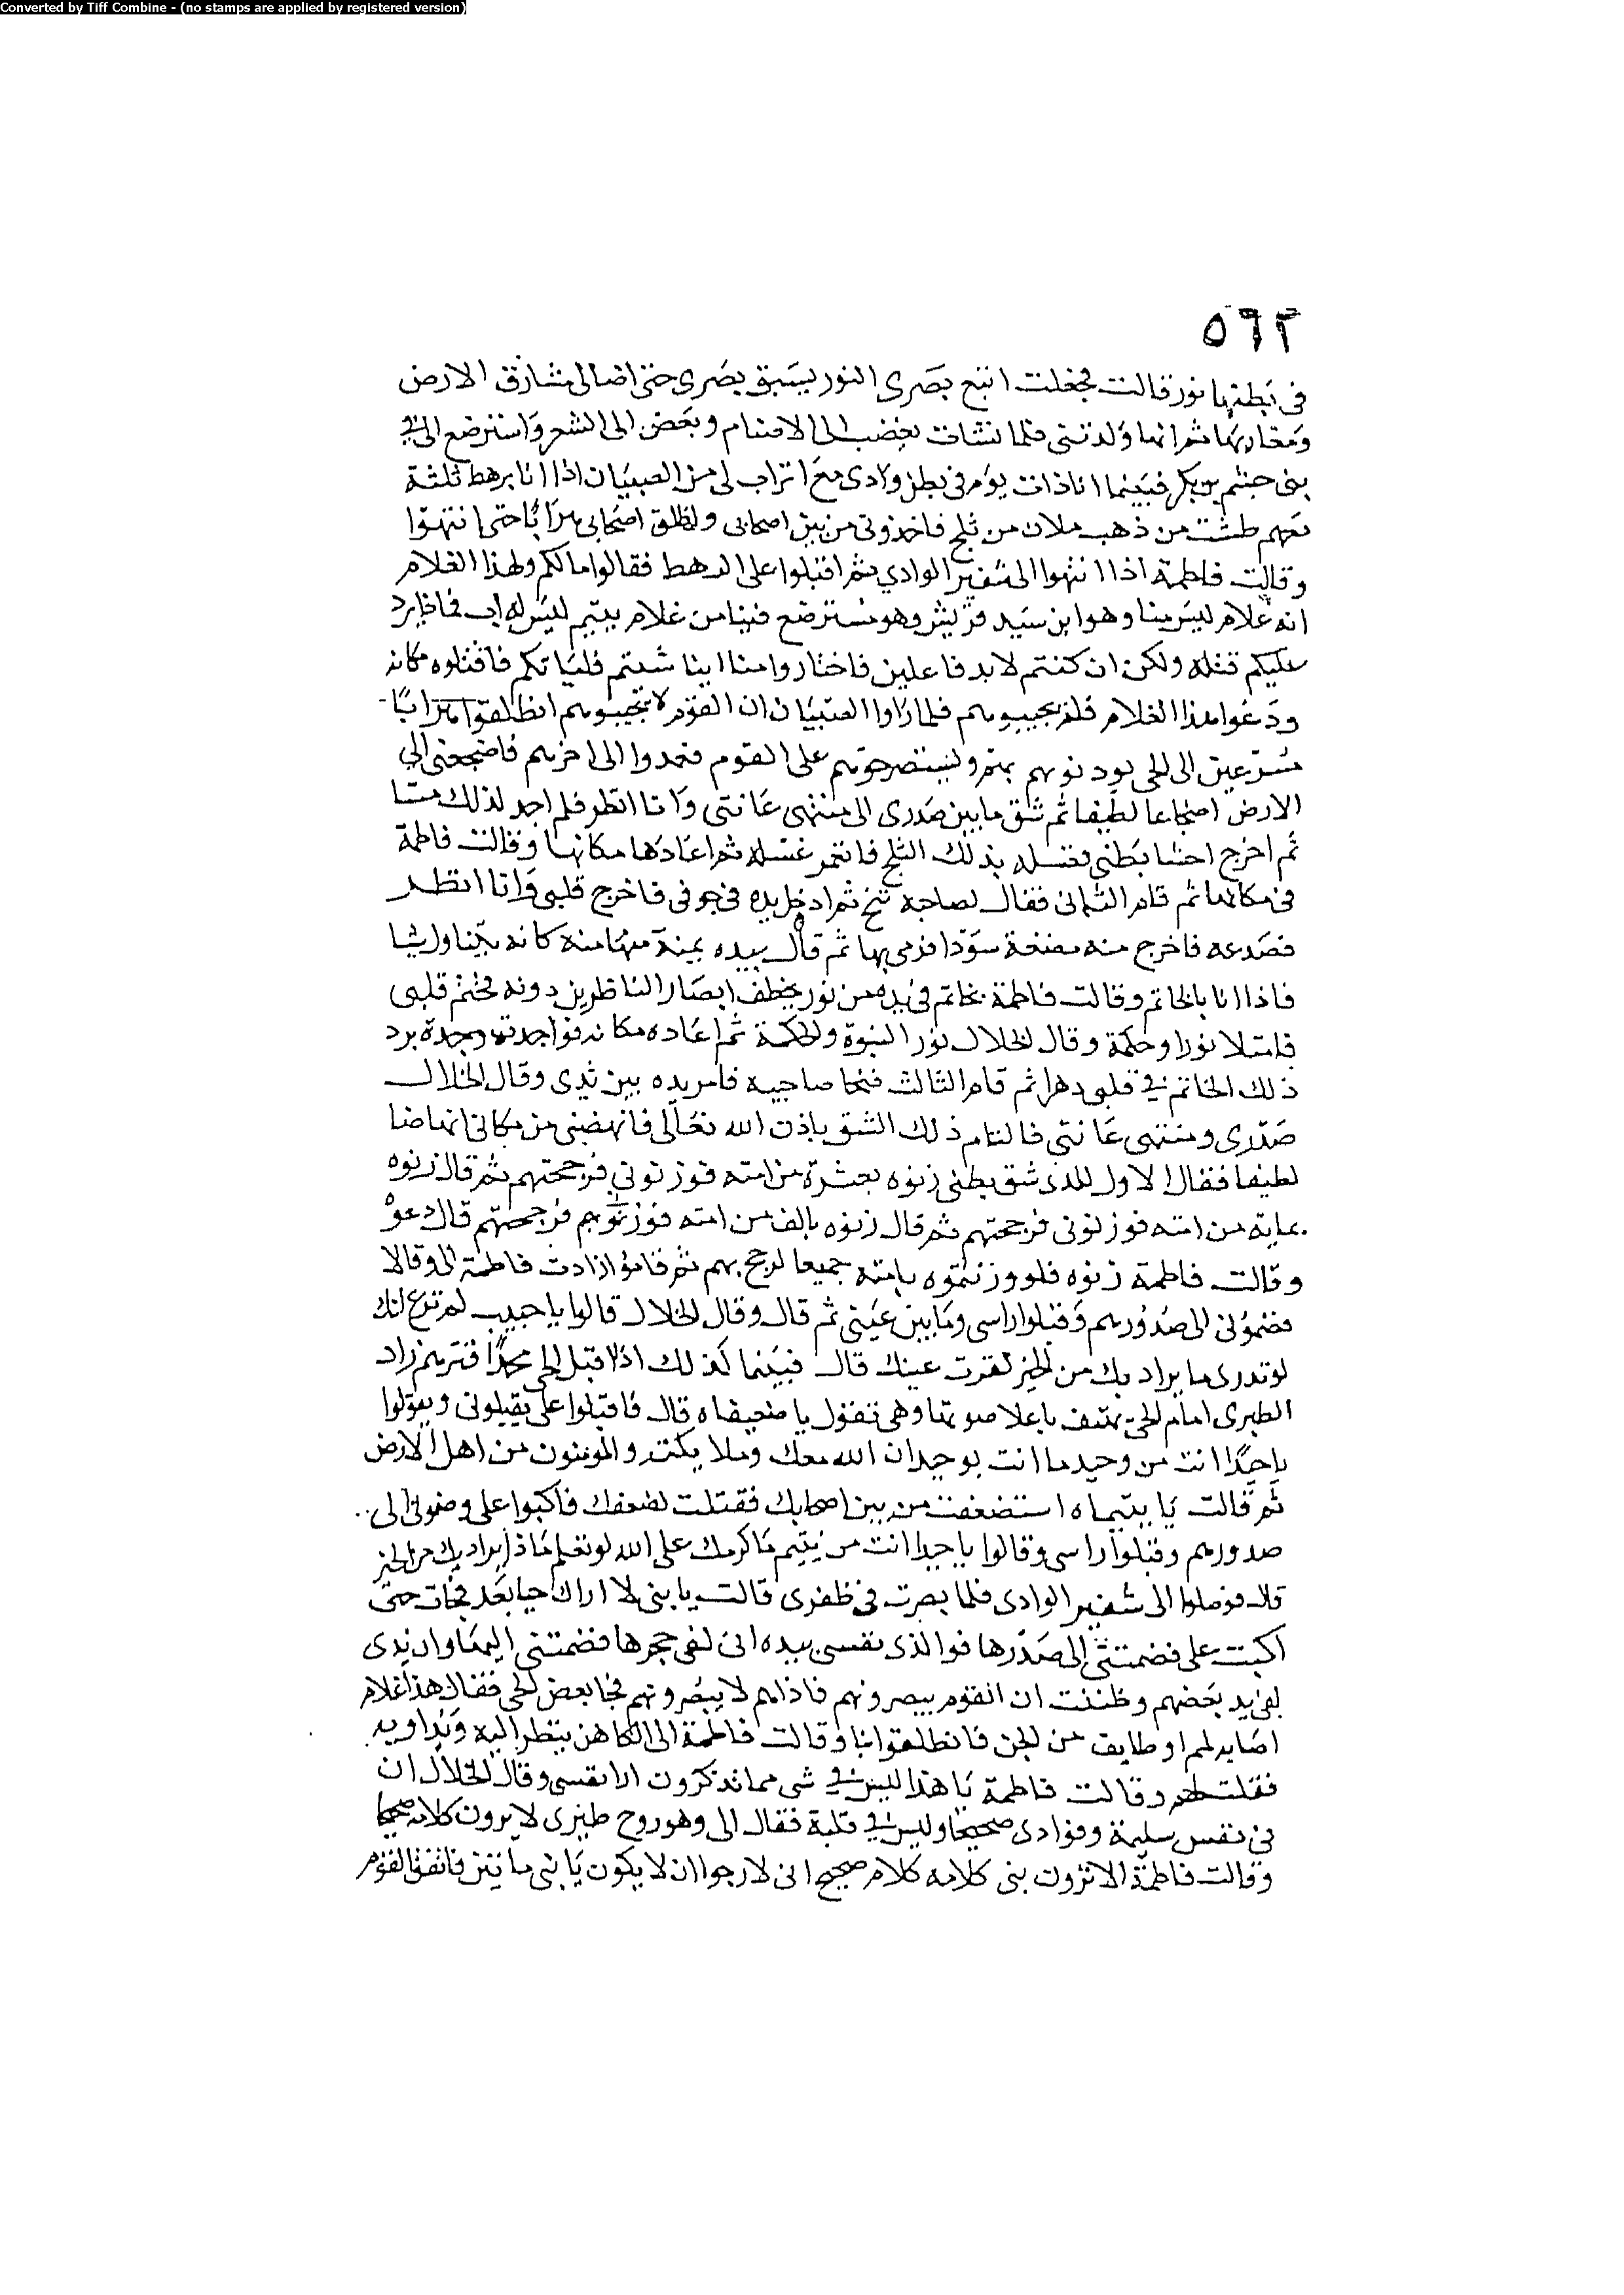 Converted by Tiff Combine - (no stamps are applied by registered version)
٥٦٢
في بطنها نور قالت فجعلت اتبع بصرى النور يسبق بصرى حتى اضا لى مشارق الارض
ومغاربها ثم انها ولدتنى فلما نشات بغض الى الاصنام وبغض الى الشعر واسترضع الى في
بنى جشم بن بكر فبينما انا ذات يوم فى بطن وادى مع اتراب لى من الصبيان اذا انا برهط ثلثة
معهم طشت من ذهب ملان من ثلج فاخذونى من بين اصحابى وانطلق اصحابى هرابا حتى انتهوا
وقالت فاطمة اذا انتهوا الى شفير الوادي ثم اقبلوا على الرهط فقالوا مالكم ولهذا الغلام
انه غلام ليس منا وهو ابن سيد قريش وهو مسترضع فينا من غلام يتيم ليس له اب فماذا يرد
عليكم قتله ولكن ان كنتم لابد فاعلين فاختاروا منا اينا شيتم فلياتكم فاقتلوه مكانه
ودعوا هذا الغلام فلم يجيبوهم فلما راوا الصبيان ان القوم لا يجيبوهم انطلقوا هرابا
مسرعين الى الحى يودنونهم بهم ويستصرخوهم على القوم فعمدوا الى احدهم فاضجعنى الى
الارض اضجاعا لطيفا ثم شق ما بين صدرى الى منتهى عانتى وانا انظر فلم اجد لذلك مسا
ثم اخرج احشا بطنى فغسله بذلك الثلج فانعم غسله ثم اعادها مكانها وقالت فاطمة
فى مكانها ثم قام الثانى فقال لصاحبه تنح ثم ادخل يده فى جوفى فاخرج قلبى وانا انظر
فصدعه فاخرج منه مضغة سودا فرمى بها ثم قال بيده يمنة منها منه كانه يتناول شيا
فاذا انا بالخاتم وقالت فاطمة بخاتم فى يده من نور يخطف ابصار الناظرين دونه فختم قلبى
فامتلا نورا وحكمة وقال الخلال نور النبوة والحكمة ثم اعاده مكانه فواجدته وجدة برد
ذلك الخاتم في قلبى دهرا ثم قام الثالث فنحا صاحبيه فامر يده بين ثدى وقال الخلال
صدرى ومنتهى عانتى فالتام ذلك الشق باذن الله تعالى فانهضنى من مكانى انهاضا
لطيفا فقال الاول للذى شق بطنى زنوه بعشرة من امته فوزنونى فرجحتهم ثم قال زنوه
بمايه من امته فوزنونى فرجحتهم ثم قال زنوه بالف من امته فوزنونى بهم فرجحتهم قال دعوه
وقالت فاطمة زنوه فلو وزنتموه بامته جميعا لرجح بهم ثم قاموا زادت فاطمة الى وقالا
فضمونى الى صدورهم وقبلوا راسى وما بين عينى ثم قال وقال الخلال قالوا يا حبيب لم ترع انك
لو تدرى ما يراد بك من الخير لقرت عينك قال فبينما كذلك اذ اقبل الحى
الطبرى امام الحى تهتف باعلا صوتها وهى تقول يا ضعيفاه قال فاقبلوا على يقبلونى ويقولوا
يا حبذا انت من وحيد ما انت بوحيد ان الله معك وملايكته والمومنون من اهل الارض
ثم قالت يا يتيماه استضعفت من بين اصحابك فقتلت لضعفك فاكبوا على وضمونى الى
صدورهم وقبلوا راسى وقالوا يا حبذا انت من يتيم ما اكرمك على الله لو تعلم ماذا يراد بك من الخير
قال فوصلوا الى شفير الوادى فلما بصرت فى ظفرى قالت يا بنى لا اراك حيا بعد فجات حتى
اكبت على فضمتنى الى صدرها فوالذى نفسى بيده انى لفى حجرها فضمتنى اليها وان يدى
لفى يد بعضهم وظننت ان القوم يبصرونهم فاذا هم لا يبصرونهم فجا بعض الحى فقال هذا غلام
اصابه لمم او طايف من الجن فانطلقوا بنا وقالت فاطمة الى الكاهن ينظر اليه ويداويه
فقلت لهم وقالت فاطمة يا هذا ليس في شى مما تذكرون ارا نفسى وقال الخلال ان
فى نفس سليمة وفوادى صحيحا وليس في قلبة فقال ابى وهو زوج ظيرى لا ترون كلامه صحيحا
وقالت فاطمة الا ترون بنى كلامه كلام صحيح انى لارجوا ان لا يكون يا بنى فاتفق القوم